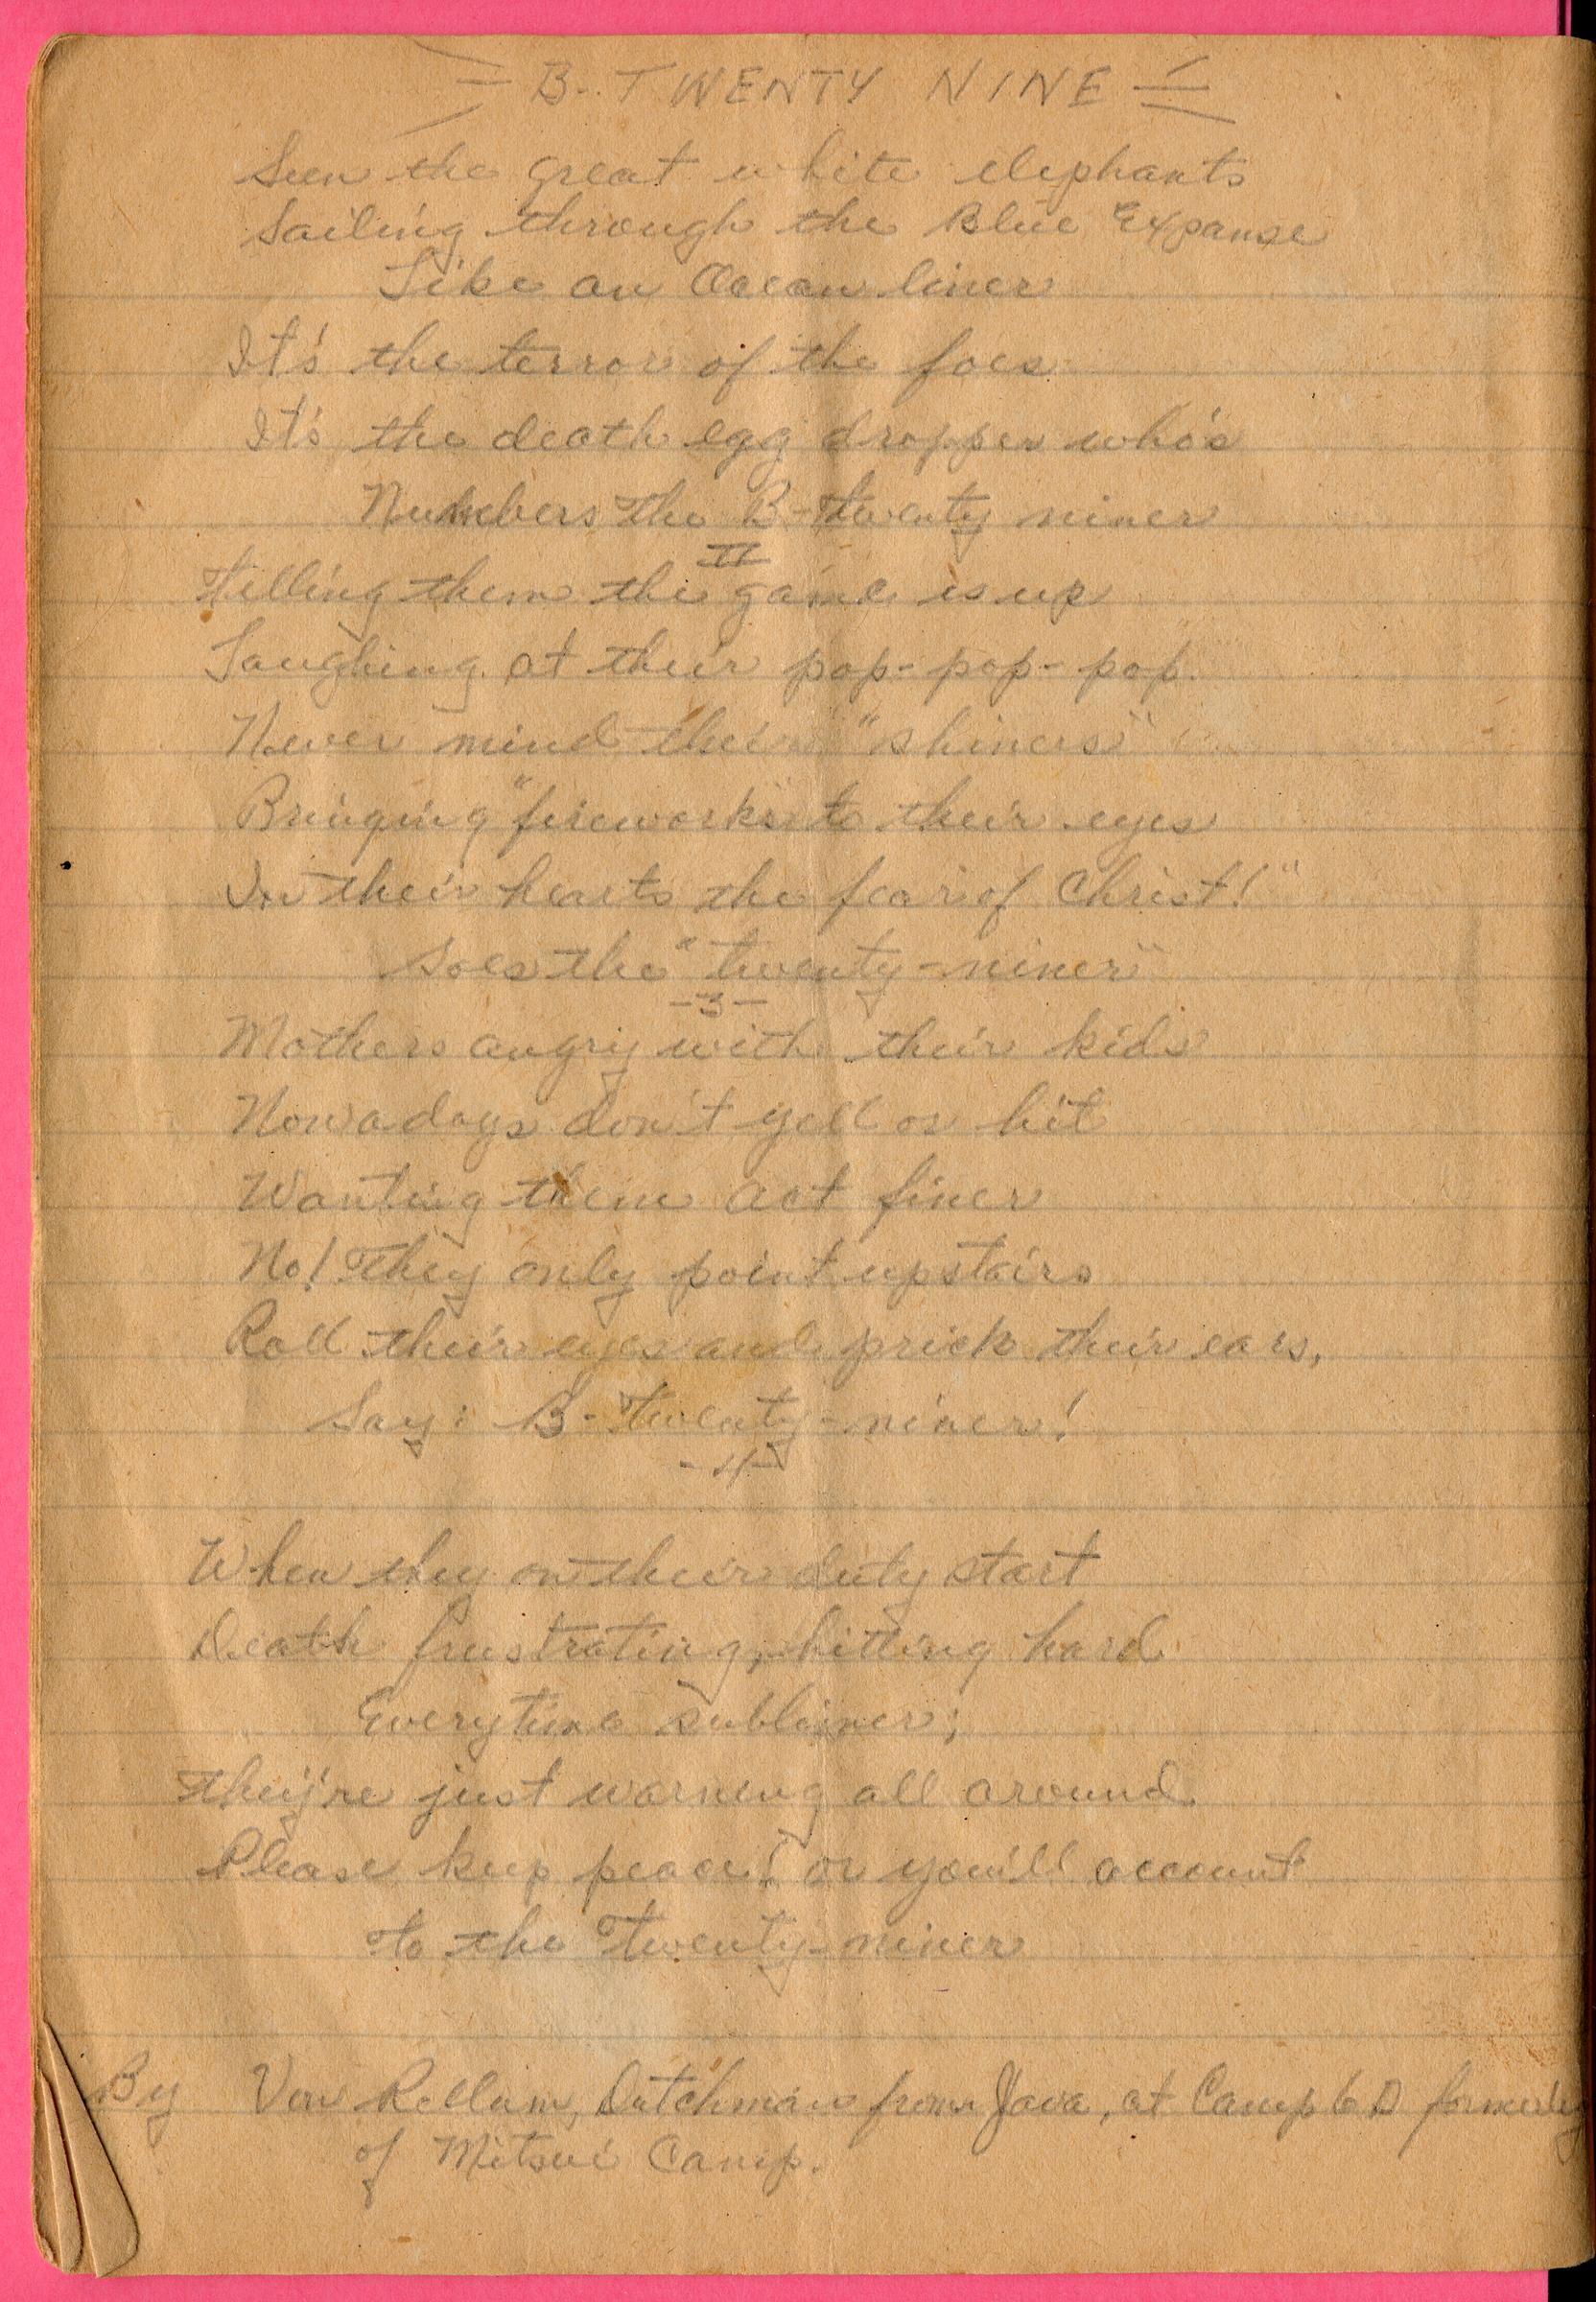 = B-TWENTY NINE =
Seen the great white elephants
Sailing through the Blue Expanse
Like an Ocean liner
It's the terror of the foes
It's the death egg dropper who's
Numbers the B-twenty niner
II
Telling them the game is up
Laughing at their pop-pop-pop
Never mind their "shiners"
Bringing "fireworks" to their eyes
In their hearts the fear of Christ!"
Does the "twenty-niner"
-3-
Mothers angry with their kids
Nowadays don't yell or hit
Wanting them act finer
No! They only point upstairs
Roll their eyes and prick their ears,
Say: B-Twenty-niner!
-4-
When they on their duty start
Death frustrating, hitting hard
Everytime sublimer;
they're just warning all around
Please keep peace! or you'll account
to the Twenty-niner
By Von Rellum, Dutchman from Java, at Camp 6 D formerly
of Mitsui Camp.